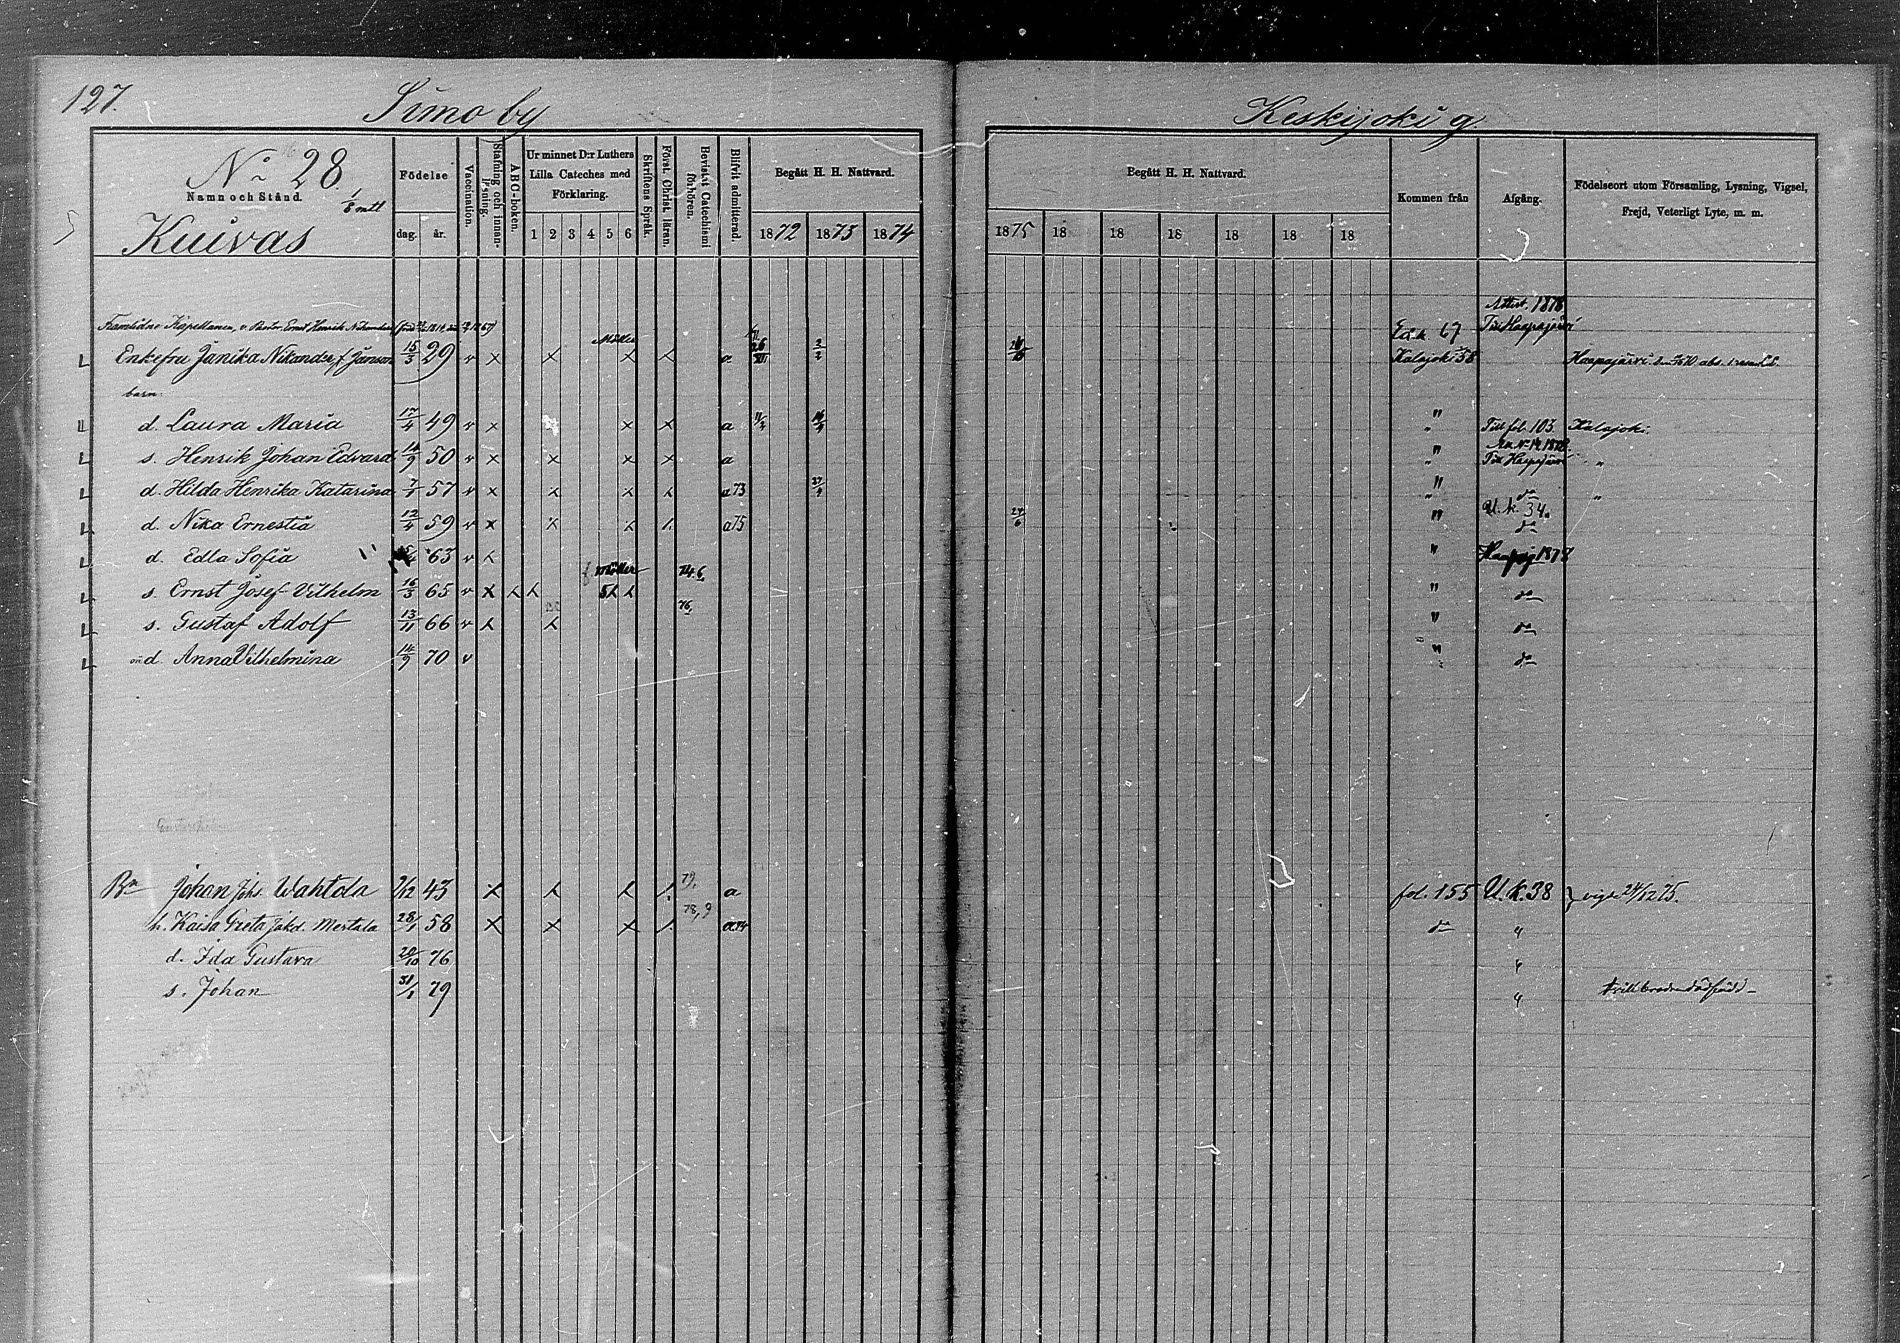 127.
Simo by
Keskijoki g.
No 28.
Namn och Stånd.
1/8 mtl
Kuivas
Födelse
dag. år.
Vaccination.
Stafning och innan-läsning.
ABC-boken.
Ur minnet D:r Luthers Lilla Cateches med Förklaring.
1 2 3 4 5 6
Skriftens Språk.
Först. Christ. läran.
Bevistat Catechismi förhören.
Blifvit admitterad.
Begått H. H. Nattvard.
1872 1873 1874
Begått H. H. Nattvard.
1875 18 18 18 18 18 18
Kommen från
Afgång.
Födelseort utom Församling, Lysning, Vigsel,
Frejd, Veterligt Lyte, m. m.
Attest. 1878
Framlidne Kapellanen, v. Pastor Ernst Henrik Nikander Till Haapajärvi
Enkefru Janika Nikander, f. Janson 15/3 29 v x x x x a Kalajoki Haapajärvi
barn:
d. Laura Maria 17/4 49 v x x x a " Till fol. 103. Kalajoki.
s. Henrik Johan Edvard 14/9 50 v x x x x a " Till Haapajärvi "
d. Hilda Henrika Katarina 57 v x x x x a 73 " do "
d. Nika Ernestia 12/4 59 v x x x x a 75 24/6 " U. k. 34. do
d. Edla Sofia 63 v x " 1878
Möller 74.6.
s. Ernst Josef Vilhelm 16/3 65 v x x x " do
76.
s. Gustaf Adolf 13/11 66 v x x " do
d. Anna Vilhelmina 14/9 70 v " do
Bn Johan Johs. Wahtola 2/12 43 x x x x 79. a fol. 155 U. k. 38 } vigde 24/12 75.
h. Kaisa Greta Jakd. Mertala 28/1 58 x x x x 78,9 a 74 do "
d. Ida Gustava 20/10 76 "
s. Johan 31/1 79 " tvillbroder dödfödd